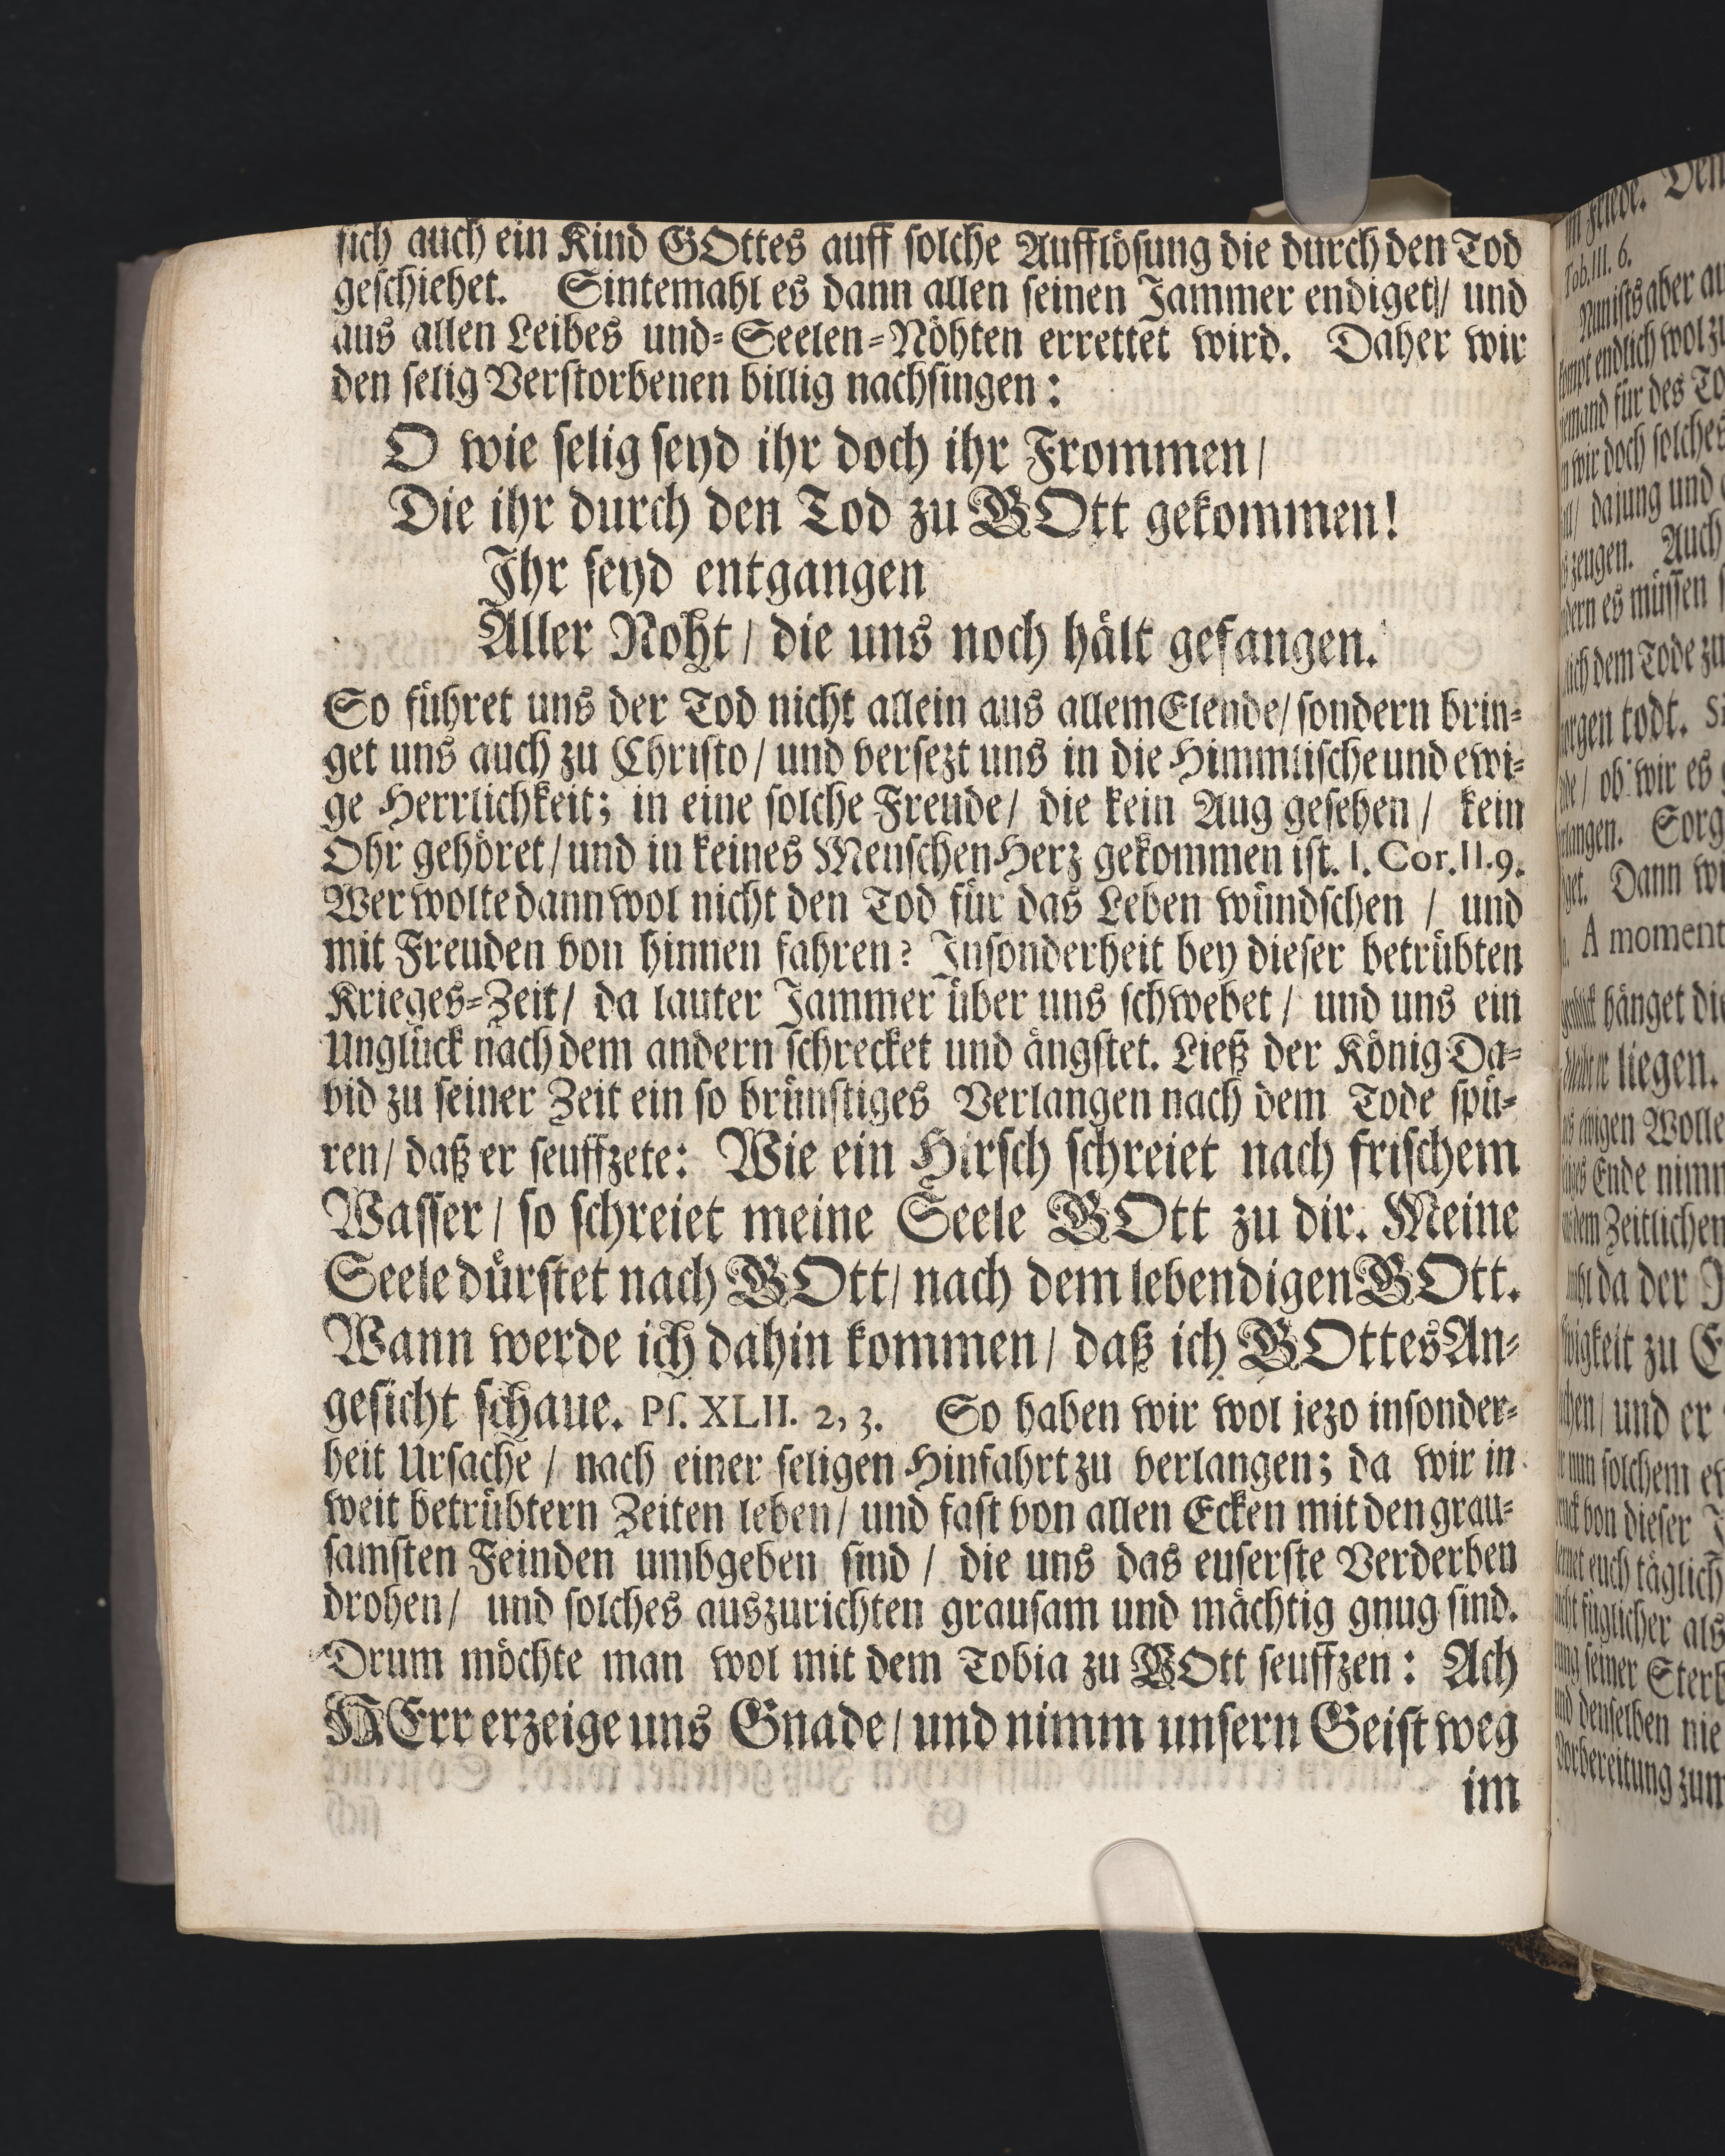 sich auch ein Kind GOttes auff solche Aufflösung die durch den Tod
geschiehet. Sintemahl es dann allen seinen Jammer endiget/ und
aus allen Leibes und-Seelen-Nöhten errettet wird. Daher wir
den selig Verstorbenen billig nachsingen:
O wie selig seyd ihr doch ihr Frommen/
Die ihr durch den Tod zu GOtt gekommen!
Ihr seyd entgangen
Aller Noht/ die uns noch hält gefangen.
So führet uns der Tod nicht allein aus allem Elende/ sondern brin-
get uns auch zu Christo/ und versezt uns in die Himmlische und ewi-
ge Herrlichkeit; in eine solche Freude/ die kein Aug gesehen/ kein
Ohr gehöret/ und in keines Menschen Herz gekommen ist. I. Cor. II. 9.
Wer wolte dann wol nicht den Tod für das Leben wündschen / und
mit Freuden von hinnen fahren? Insonderheit bey dieser betrübten
Krieges-Zeit/ da lauter Jammer über uns schwebet/ und uns ein
Unglück nach dem andern schrecket und ängstet. Ließ der König Da-
vid zu seiner Zeit ein so brünstiges Verlangen nach dem Tode spü-
ren/ daß er seuffzete: Wie ein Hirsch schreiet nach frischem
Wasser/ so schreiet meine Seele GOtt zu dir. Meine
Seele dürstet nach GOtt/ nach dem lebendigen GOtt.
Wann werde ich dahin kommen/ daß ich GOttes An-
gesicht schaue. Ps. XLII. 2, 3. So haben wir wol jezo insonder-
heit Ursache/ nach einer seligen Hinfahrt zu verlangen; da wir in
weit betrübtern Zeiten leben/ und fast von allen Ecken mit den grau-
samsten Feinden umbgeben sind / die uns das euserste Verderben
drohen/ und solches auszurichten grausam und mächtig gnug sind.
Drum möchte man wol mit dem Tobia zu GOtt seuffzen: Ach
HErr erzeige uns Gnade/ und nimm unsern Geist weg
im
im Friede. Den
Tob. III. 6.
Nun ists aber
endlich wol zu
für des To
wir doch solches
da jung und
zeugen. Auch
es müssen
dem Tode zu
todt.
/ ob wir es
langen. Sorg
get. Dann
A moment
hänget die
liegen.
Wolle
Ende nimm
dem Zeitlichen
da der
zu
/ und er
nun solchem
von dieser
euch täglich
füglicher als
seiner Sterb
denselben nie
Vorbereitung zum